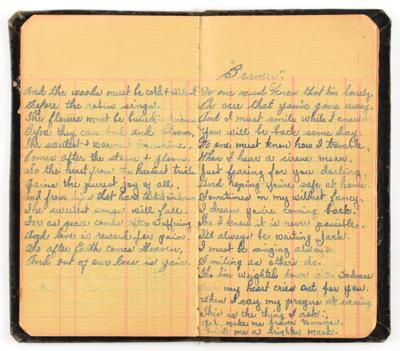 And the woods must be cold & silent
Before the robin sings.
The flowers must be buried in
Before they can bud and bloom,
The sweetest & warmest sunshine,
Comes after the storm & gloom.
So the heart from the hardest trial
Gains the purest joy of all,
And from lips that have
The sweetest songs will fall.
For as peace comes after suffering
And love is reward for pain,
So after Earth comes Heaven,
And out of our loss is gain.
No one must know that I'm lonely
Or care that you're gone away.
And I must smile while I answer
You will be back some day.
No one must know how I tremble,
When I hear a sirene moan,
Just fearing for you darling,
And hoping you're safe at home.
Sometimes in my wildest fancy,
I dream you're coming back.
Tho I know it is never possible,
I'll always be waiting Jack.
I must be singing always
Smiling as others do.
Tho I'm weighted down with Sadness
my heart cries out for you.
When I say my prayers at evening
This is the thing I ask;
God, make me braver tomorrow,
me a brighter mask.